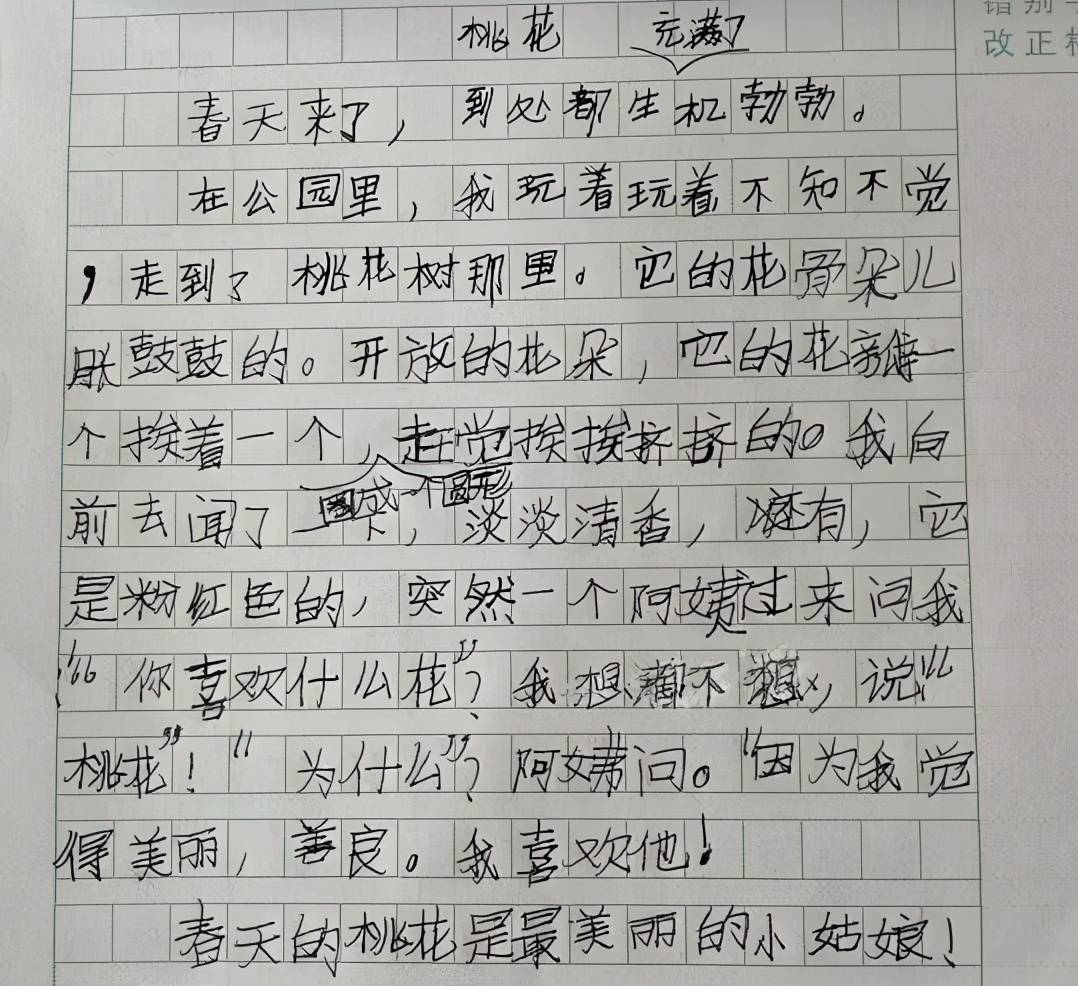 错别字
改正栏
桃花
充满了
春天来了，到处都生机勃勃。
在公园里，我玩着玩着不知不觉
，走到了桃花树那里。它的花骨朵儿
胀鼓鼓的。开放的花朵，它的花瓣一
个挨着一个，挨挨挤挤的。我向
围成一个圆形
前去闻了一下，淡淡清香，还有，它
是粉红色的，突然一个阿姨过来问我
“你喜欢什么花”？我想都不想，说“
桃花”！“为什么”？阿姨问。“因为我觉
得美丽，善良。我喜欢他！
春天的桃花是最美丽的小姑娘！